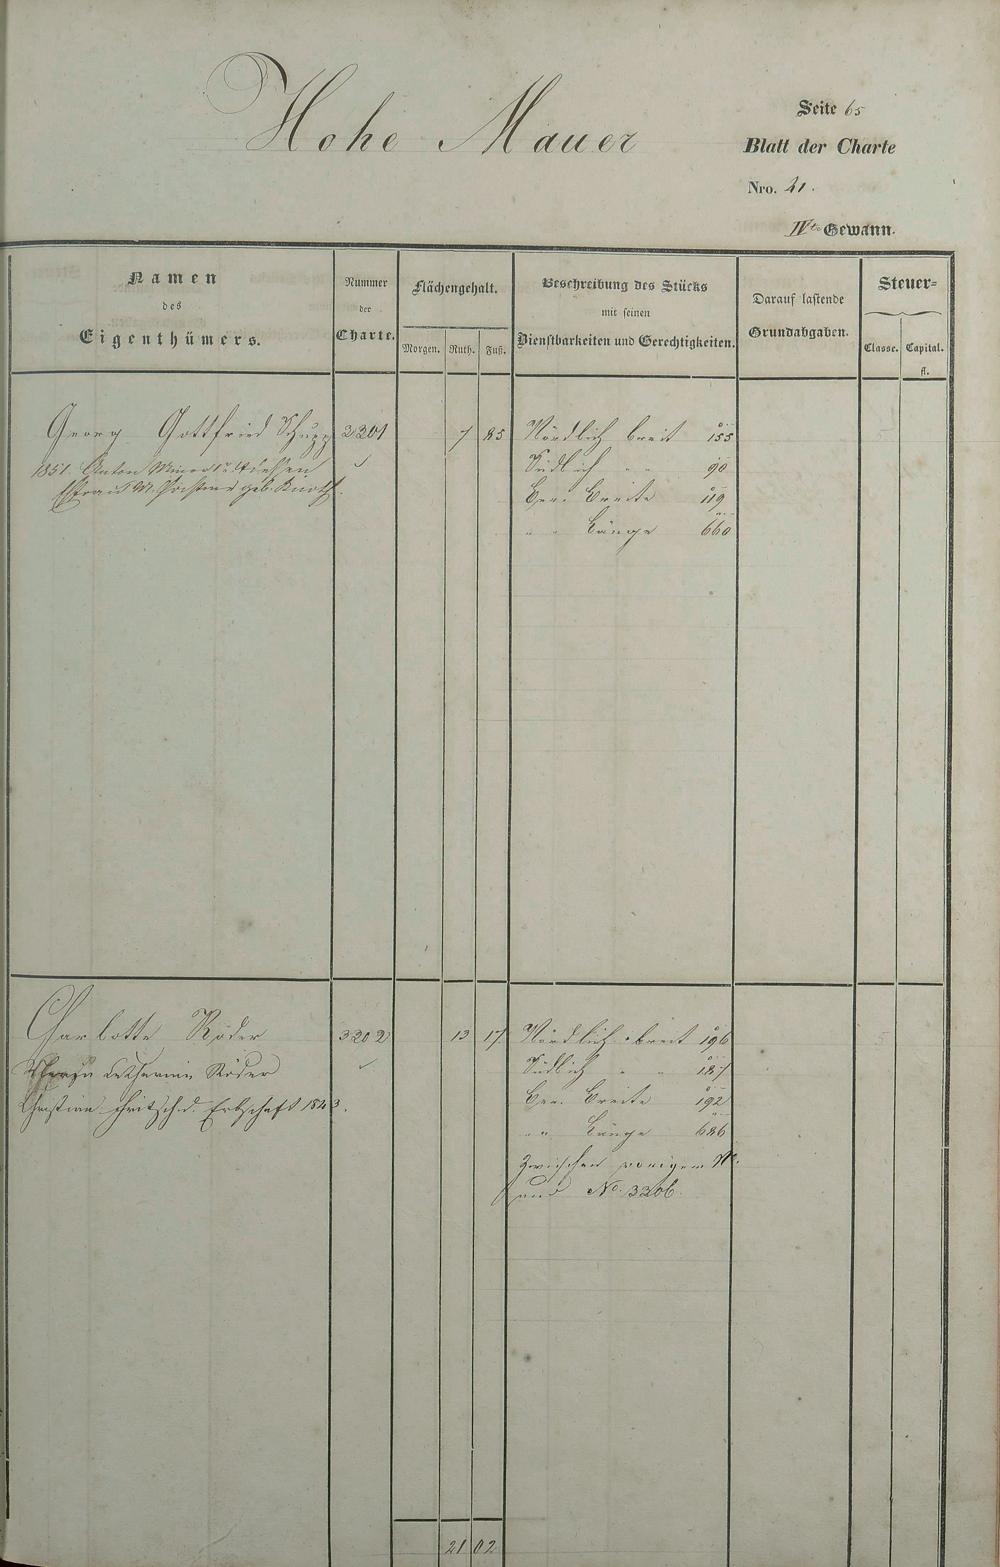 Hohe Mauer
Seite 65
Blatt der Charte
Nro. 21.
IVte Gewann.
Namen
des
Eigenthümers.
Nummer
der
Charte.
Flächengehalt.
Morgen. Ruth. Fuß.
Beschreibung des Stücks
mit seinen
Dienstbarkeiten und Gerechtigkeiten.
Darauf lastende
Grundabgaben.
Steuer=
Classe. Capital.
fl.
Georg Gottfried Schupp 3201 7 85 Nördlich breit 155
1851. Anton Minor Südlich " " 90
Ehefrau geb. Knoth. Ger. Breite 119
" " Länge 660
Charlotte Röder 3202 13 17 Nördlich breit 196
Catharine Röder Südlich " " 187
Christian Erbschaft 1843. Ger. Breite 192
" " Länge 686
Zwischen voriger No.
und No. 3206.
21 02